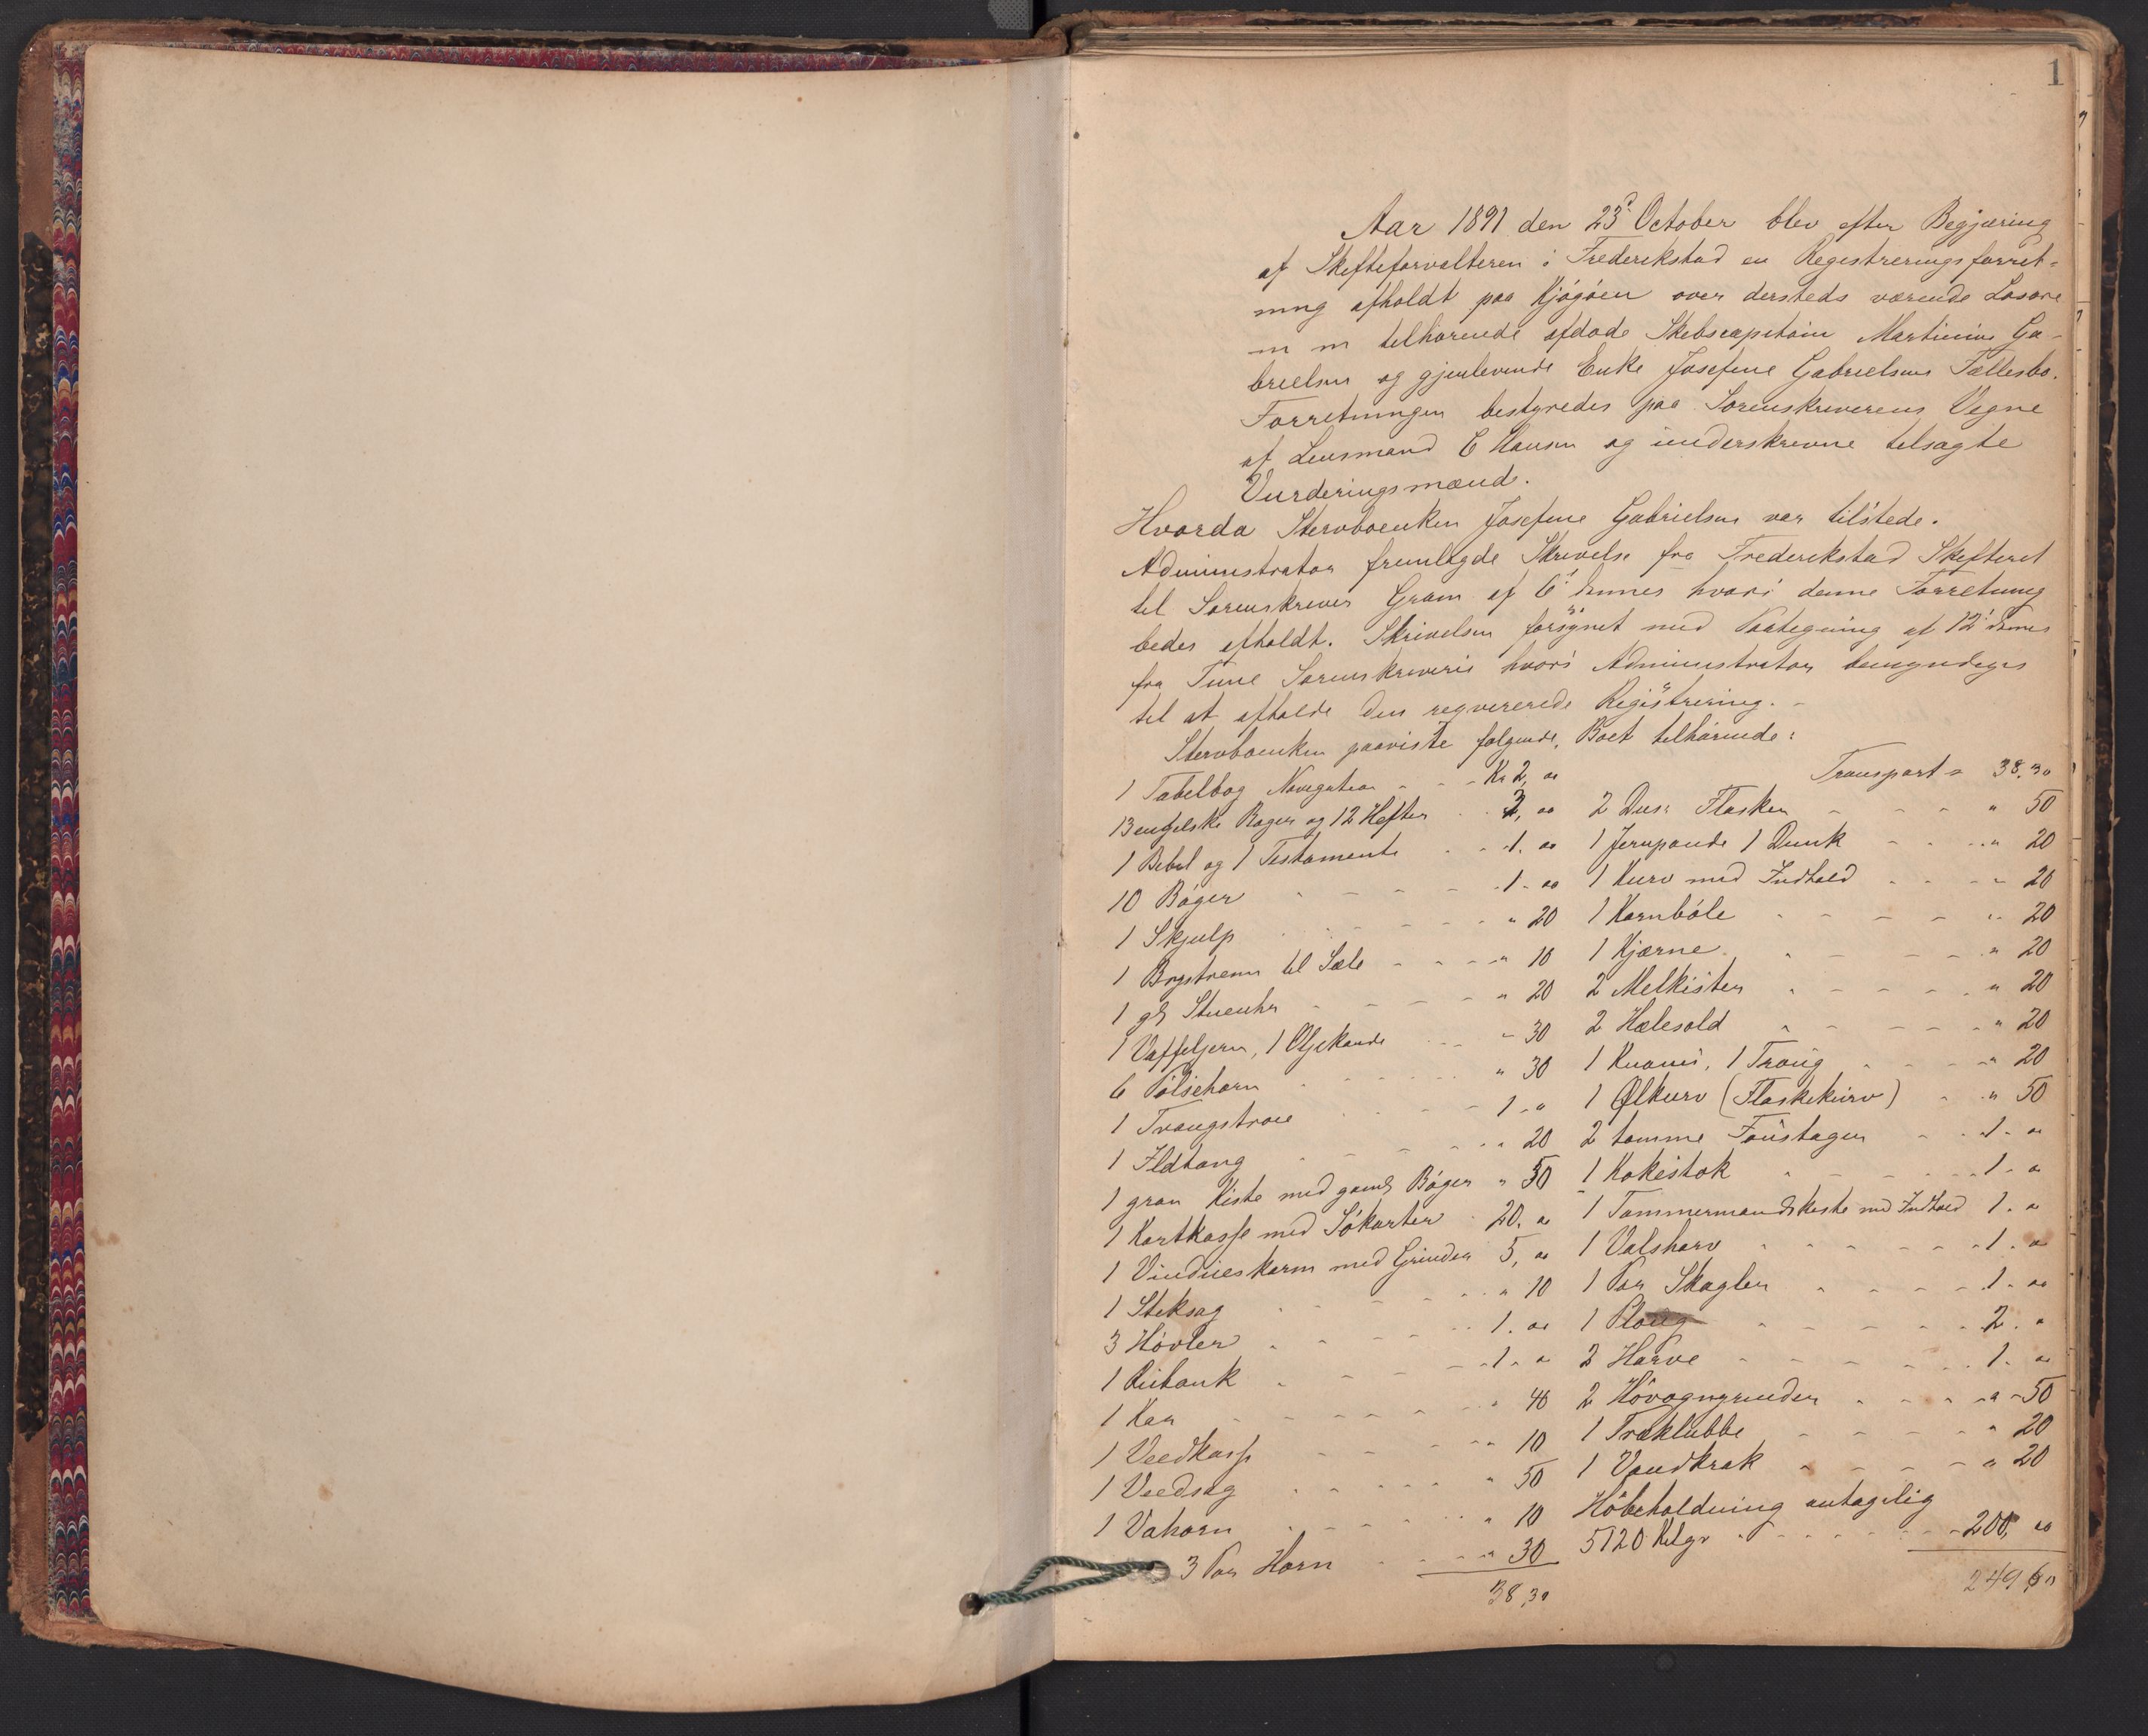 1
Aar 1891 den 23d October blev efter Begjæring
af Skifteforvalteren i Frederikstad en Registreringsforret-
ning afholdt paa Kjøgöen over dersteds værende Løsøre
m m tilhørende afdøde Skibscaptain Martinius Ga-
brielsen og gjenlevende Enke Josefine Gabrielsens Fællesbo.
Forretningen bestyredes paa Sorenskriverens Vegne
af Lensmand C Hansen og underskrevne tilsagte
Vurderingsmænd.
Hvorda Stervboenken Josefine Gabrielsen var tilstede.
Administrator fremlagde Skrivelse fra Frederikstad Skifteret
til Sorenskriver Gram af 6t dennes hvori denne Forretning
bedes afholdt. Skrivelsen forsynet med Paategning af 12t dennes
fra Tune Sorenskriveri hvori Administrator bemyndiges
til at afholde den reqvirerede Registrering. -
Stervboenken paaviste følgende, Boet tilhørende:
1 Tabelbog Navigation - - - Kr 2, oo
13 engelske Bøger og 12 Hefter - - 2, oo
1 Bibel og 1 Testamente - - 1. oo
10 Bøger - - - - 1. oo
1 Skjulp - - - - " 20
1 Brystrem til Sæle - - - " 10
1 gl Stueuhr - - - - " 20
1 Vaffeljern, 1 Oljekande - - " 30
6 Pölsehorn - - - - " 30
1 Tvangstrøie - - - - 1. "
1 Ildtang - - - - " 20
1 grøn Kiste med gaml Bøger " 50
1 Kartkasse med Sökarter 20. "
1 Vindueskarm med Grinder 5, oo
1 Stiksag - - - - " 10
3 Høvler - - - - 1. oo
1 Rubank - - - - 1. "
1 Kar - - - - " 40
1 Veedkasse - - - - " 10
1 Veedsag - - - - " 50
1 Vahorn - - - - " 10
3 Par Horn - - - " 30
38,30
Transport = 38.30
2 Dus: Flasker - - - - " 50
1 Jernpande 1 Dunk - - - " 20
1 Kurv med Indhold - - - " 20
1 Kornböle - - - - " 20
1 Kjærne - - - - " 20
2 Melkister - - - - " 20
2 Hælesold - - - - " 20
1 , 1 Traug - - - " 20
1 Ølkurv (Flaskekurv) - - " 50
2 tomme Foustager - - 1. "
1 Kokestok - - - - 1. "
1 Tømmermandskiste med Indhold 1. "
1 Valsharv - - - - 1. "
1 Par Skagler - - - - 1. oo
1 Ploug - - - - 2. "
2 Harve - - - - 1. oo
2 Høvogngrinder - - - " 50
1 Træklubbe - - - - " 20
1 Vandkrak - - - - " 20
Höbeholdning antagelig
5120 Kilgr - - - - 200, oo
249 60